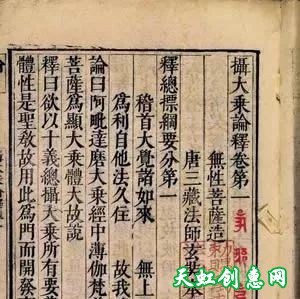 攝大乘論釋卷第一
無性菩薩造
唐三藏法師玄奘奉
釋總標綱要分第一
稽首大覺諸如來　無上
爲利自他法久住　故我
論曰阿毗達磨大乘經中薄伽梵
菩薩爲顯大乘體大故說
釋曰欲以十義總攝大乘所有要
體性是聖教故用此爲門而開發
天虹创意网